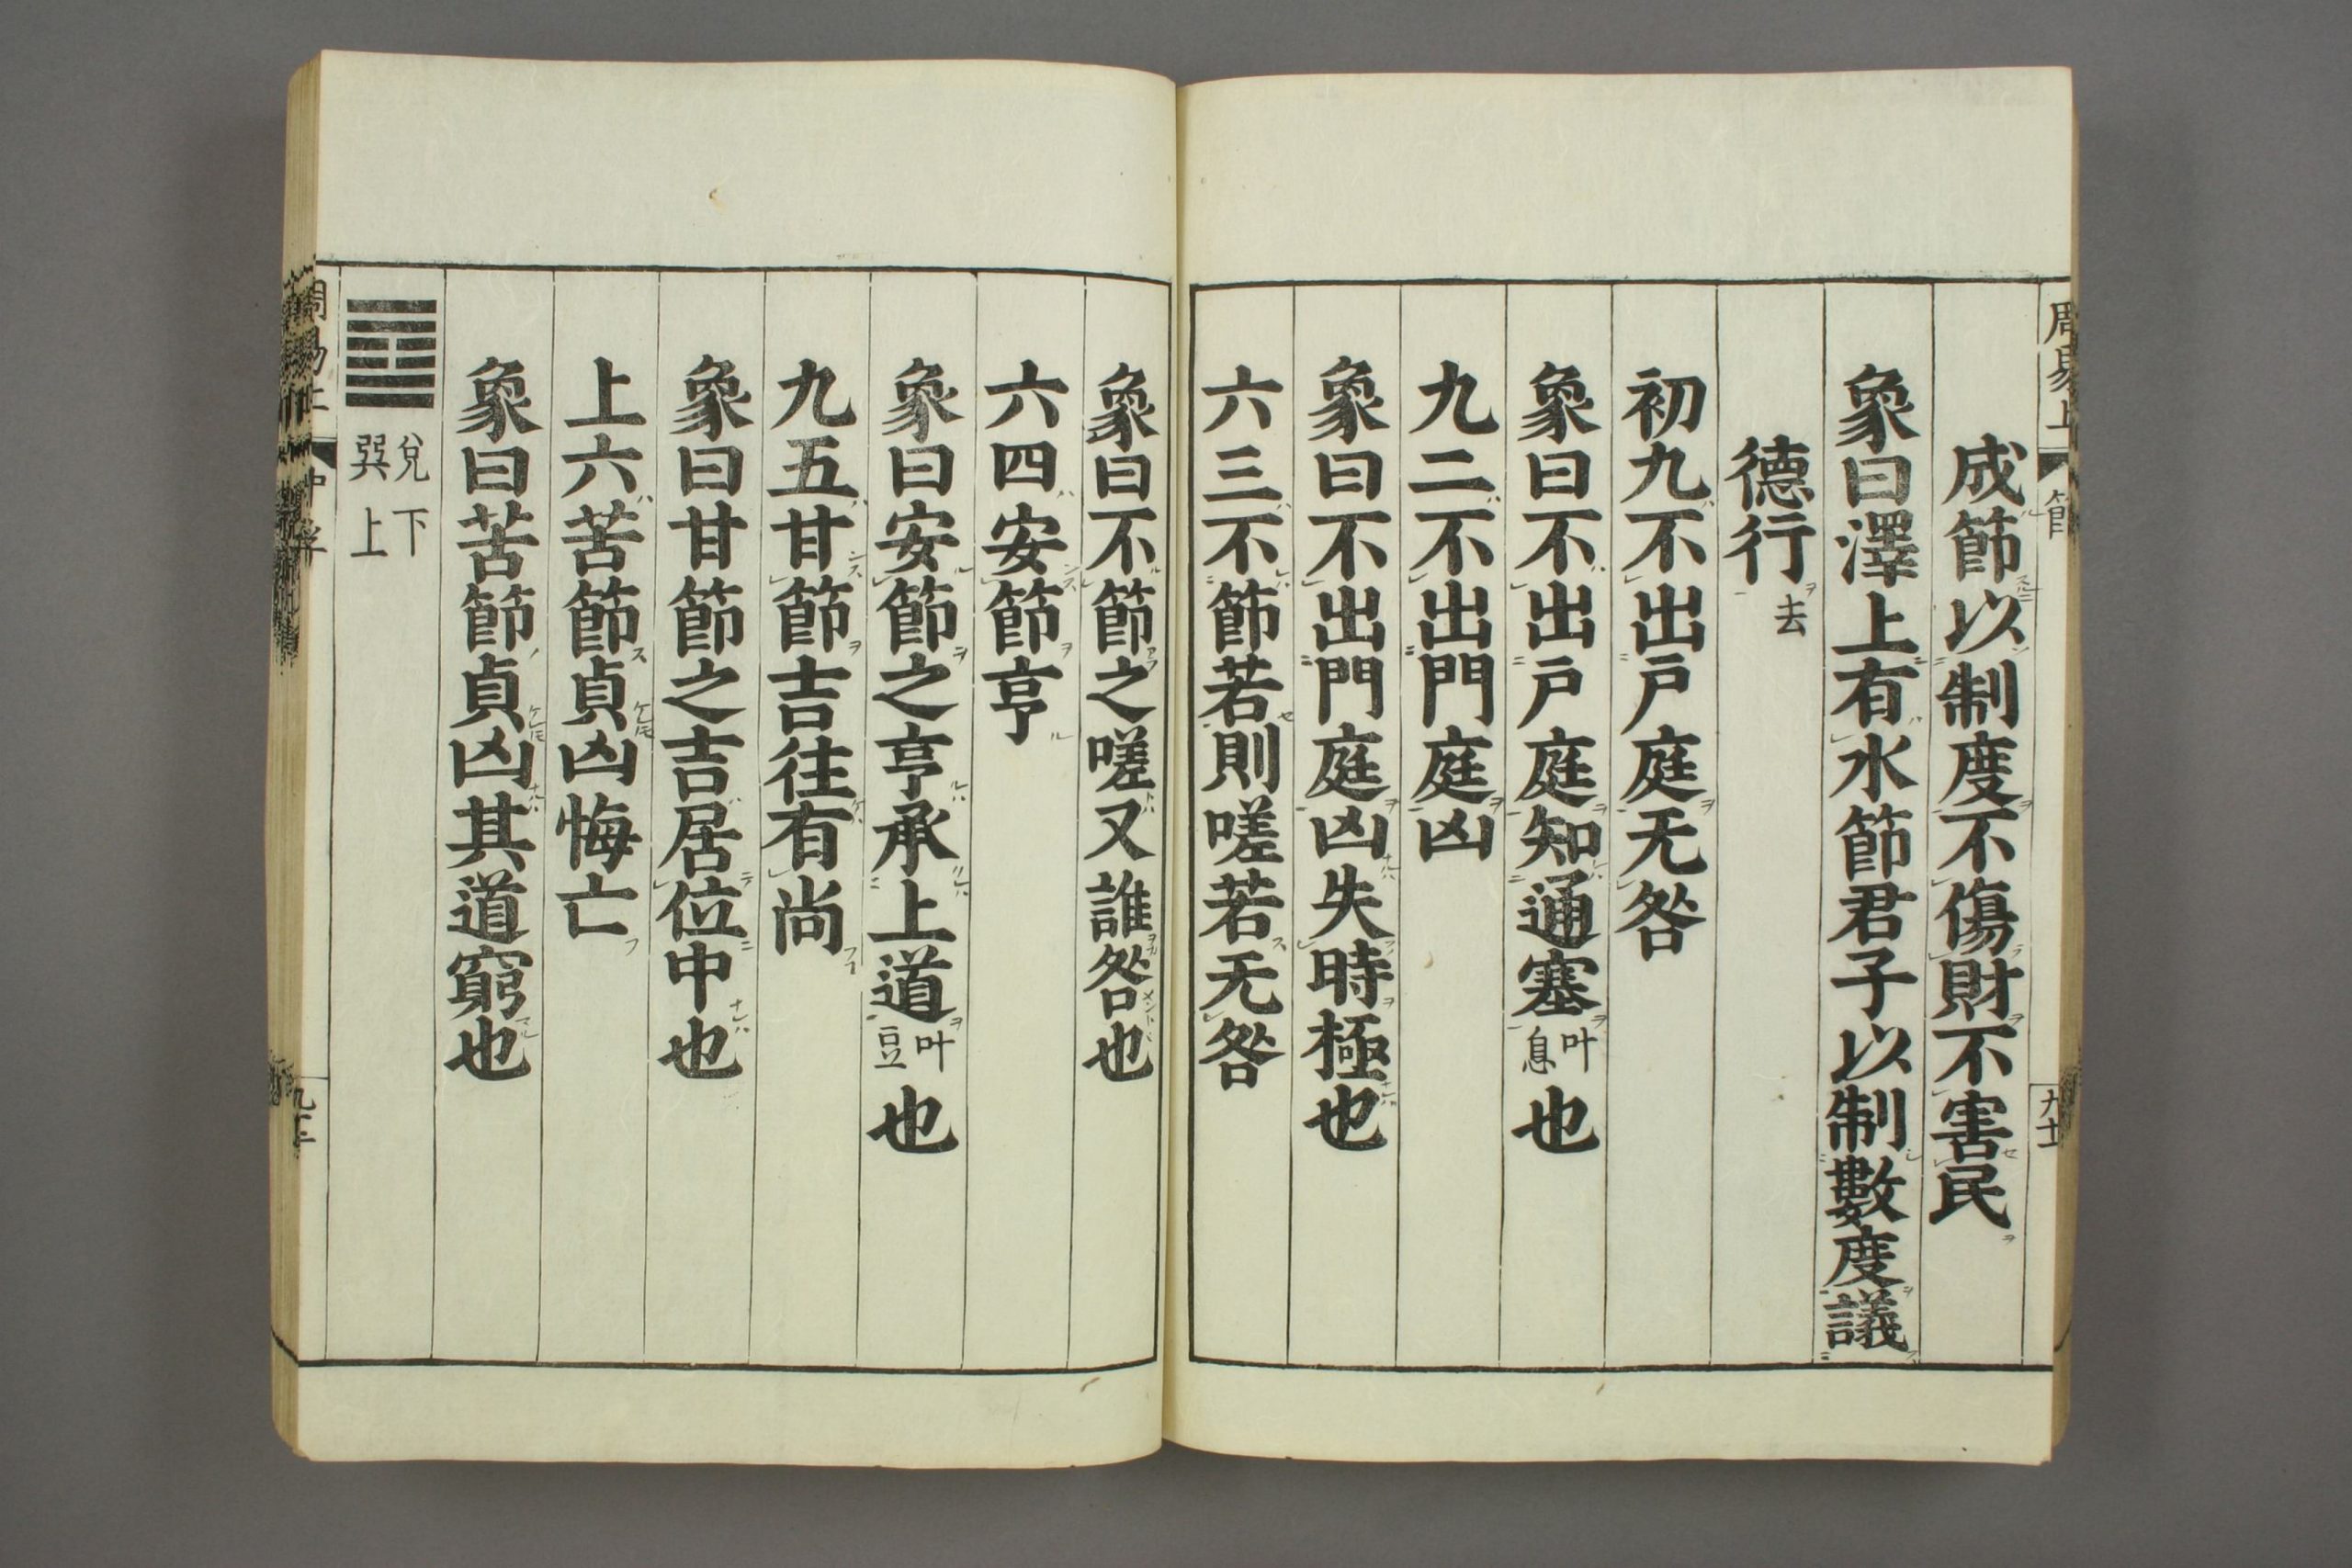 周易上 節
成節以制度不傷財不害民
象曰澤上有水節君子以制數度議
德行去
初九不出戸庭无咎
象曰不出戸庭知通塞叶息也
九二不出門庭凶
象曰不出門庭凶失時極也
六三不節若則嗟若无咎
象曰不節之嗟又誰咎也
六四安節亨
象曰安節之亨承上道叶豆也
九五甘節吉往有尚
象曰甘節之吉居位中也
上六苦節貞凶悔亡
象曰苦節貞凶其道窮也
䷼ 兌下
巽上
中孚